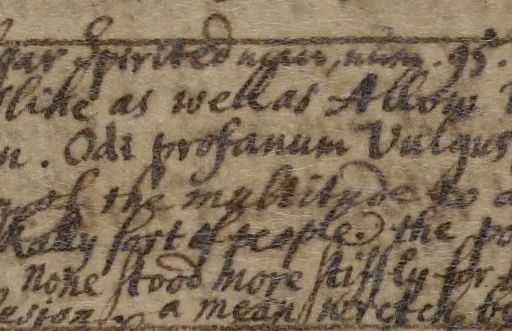 gar Spirited man, num. 95.
slike as well as Allow
n. Odi profanum Vulgus
of the multitude to a
shady sort of people, the po
none stood more stiffly for
a mean wretch, be